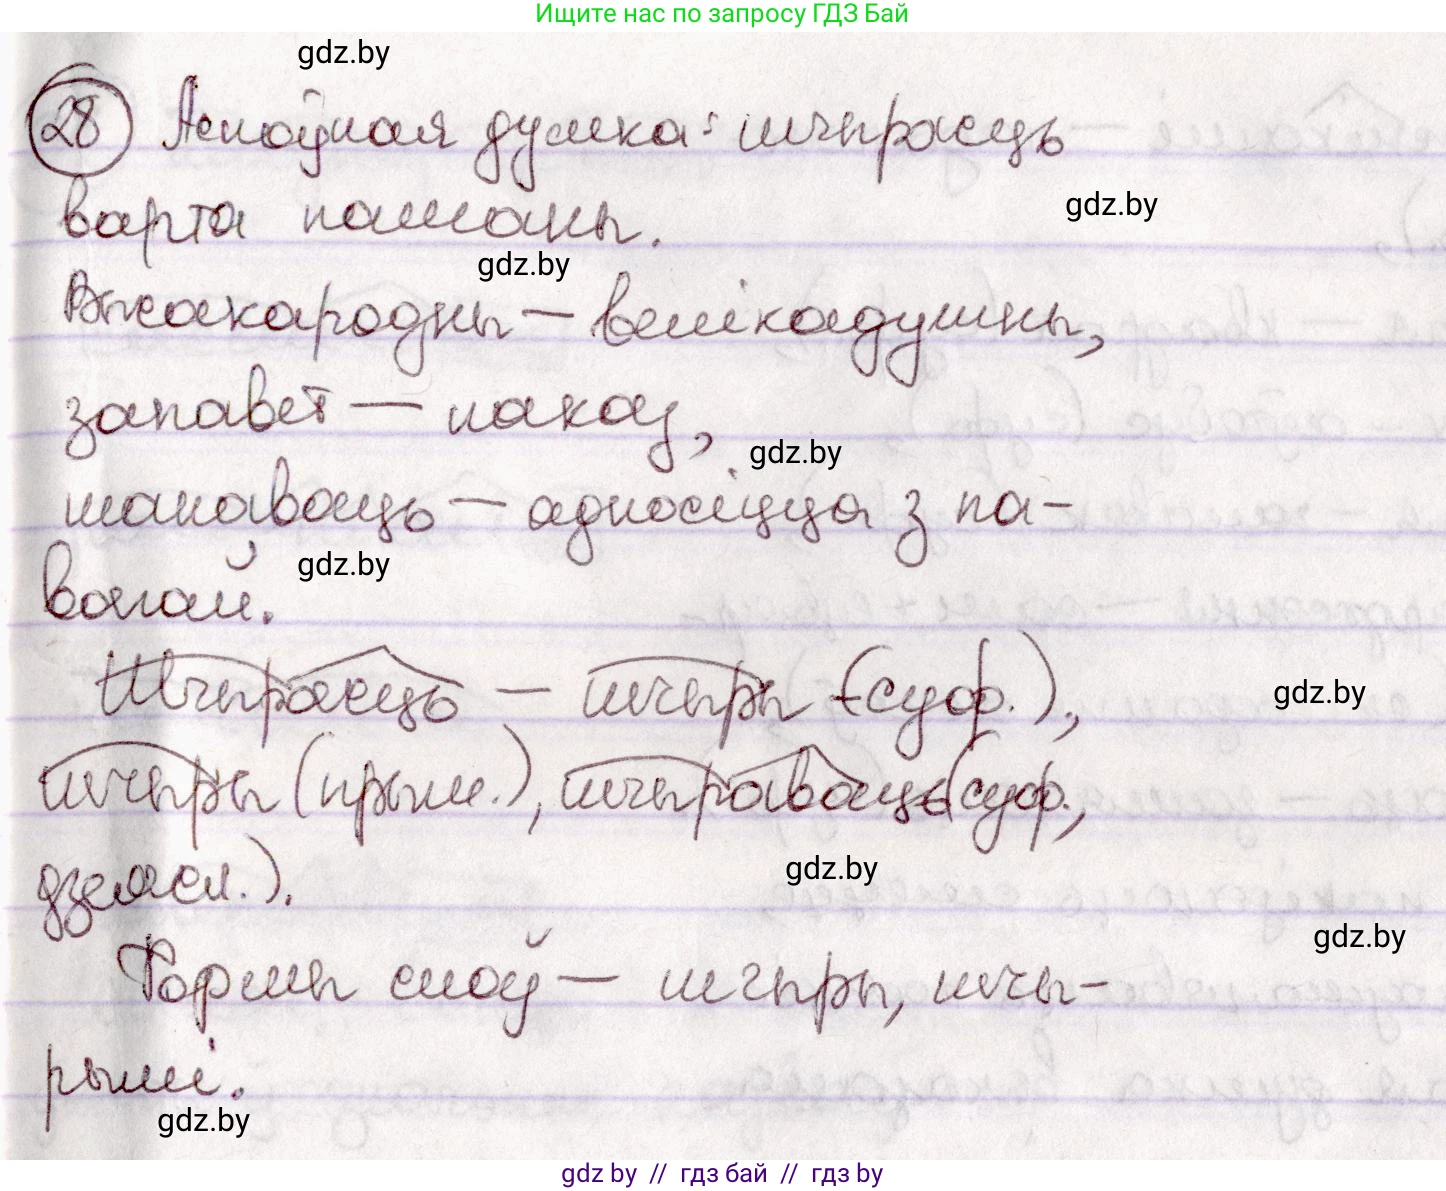 Ищите нас по запросу ГДЗ Бай
gdz.by
28 Асноўная думка: шчырасць
gdz.by
варта пашаны.
gdz.by
Высакародны – велікадушны,
запавет – наказ,
gdz.by
шанаваць – адносіцца з па-
gdz.by
вагай.
Шчырасць – шчыры + (суф.),
gdz.by
шчыры (прым.), шчыраваць (суф.,
gdz.by
дзеясл.).
gdz.by
Формы слоў – шчыры, шчы-
рымі.
gdz.by
gdz by // гдз бай // гдз by